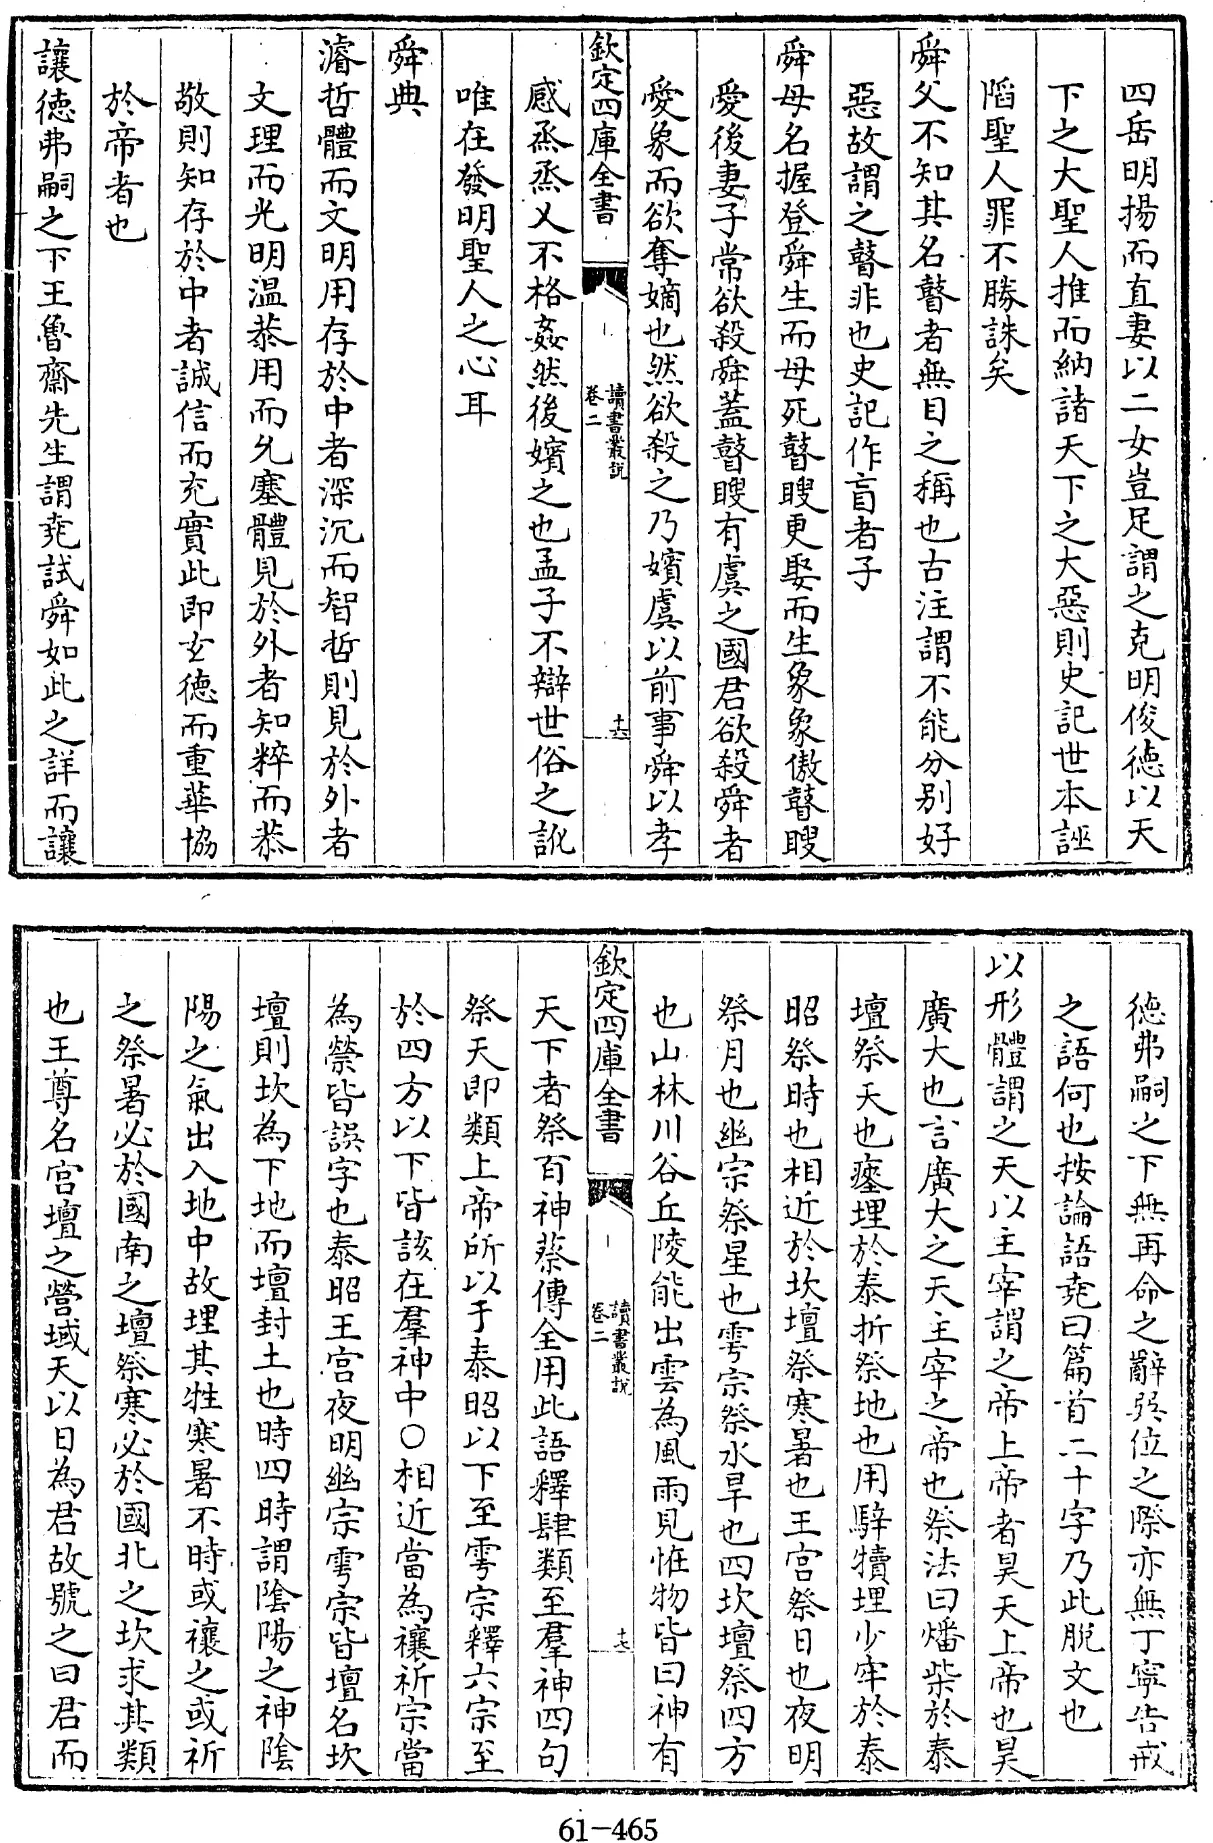 四岳明揚而直妻以二女豈足謂之克明俊徳以天
下之大聖人推而納諸天下之大惡則史記世本誣
䧟聖人罪不勝誅矣
舜父不知其名瞽者無目之稱也古注謂不能分别好
惡故謂之瞽非也史記作盲者子
舜母名握登舜生而母死瞽瞍更娶而生象象傲瞽瞍
愛後妻子常欲殺舜蓋瞽瞍有虞之國君欲殺舜者
愛象而欲奪嫡也然欲殺之乃嬪虞以前事舜以孝
欽定四庫全書
讀書叢説
卷二
十六
感烝烝乂不格姦然後嬪之也孟子不辯世俗之訛
唯在發明聖人之心耳
舜典
濬哲體而文明用存於中者深沉而智哲則見於外者
文理而光明温恭用而允塞體見於外者知粹而恭
敬則知存於中者誠信而充實此即𤣥徳而重華協
於帝者也
讓徳弗嗣之下王魯齋先生謂堯試舜如此之詳而讓
徳弗嗣之下無再命之辭巽位之際亦無丁寧告戒
之語何也按論語堯曰篇首二十字乃此脱文也
以形體謂之天以主宰謂之帝上帝者昊天上帝也昊
廣大也言廣大之天主宰之帝也祭法曰燔柴於泰
壇祭天也瘞埋於泰折祭地也用騂犢埋少牢於泰
昭祭時也相近於坎壇祭寒暑也王宫祭日也夜明
祭月也幽宗祭星也雩宗祭水旱也四坎壇祭四方
也山林川谷丘陵能出雲為風雨見怪物皆曰神有
欽定四庫全書
讀書叢説
卷二
十七
天下者祭百神蔡傳全用此語釋肆類至羣神四句
祭天即類上帝所以于泰昭以下至雩宗釋六宗至
於四方以下皆該在羣神中○相近當為禳祈宗當
為禜皆誤字也泰昭王宫夜明幽宗雩宗皆壇名坎
壇則坎為下地而壇封土也時四時謂陰陽之神陰
陽之氣出入地中故埋其牲寒暑不時或禳之或祈
之祭暑必於國南之壇祭寒必於國北之坎求其類
也王尊名宫壇之營域天以日為君故號之曰君而
61-465